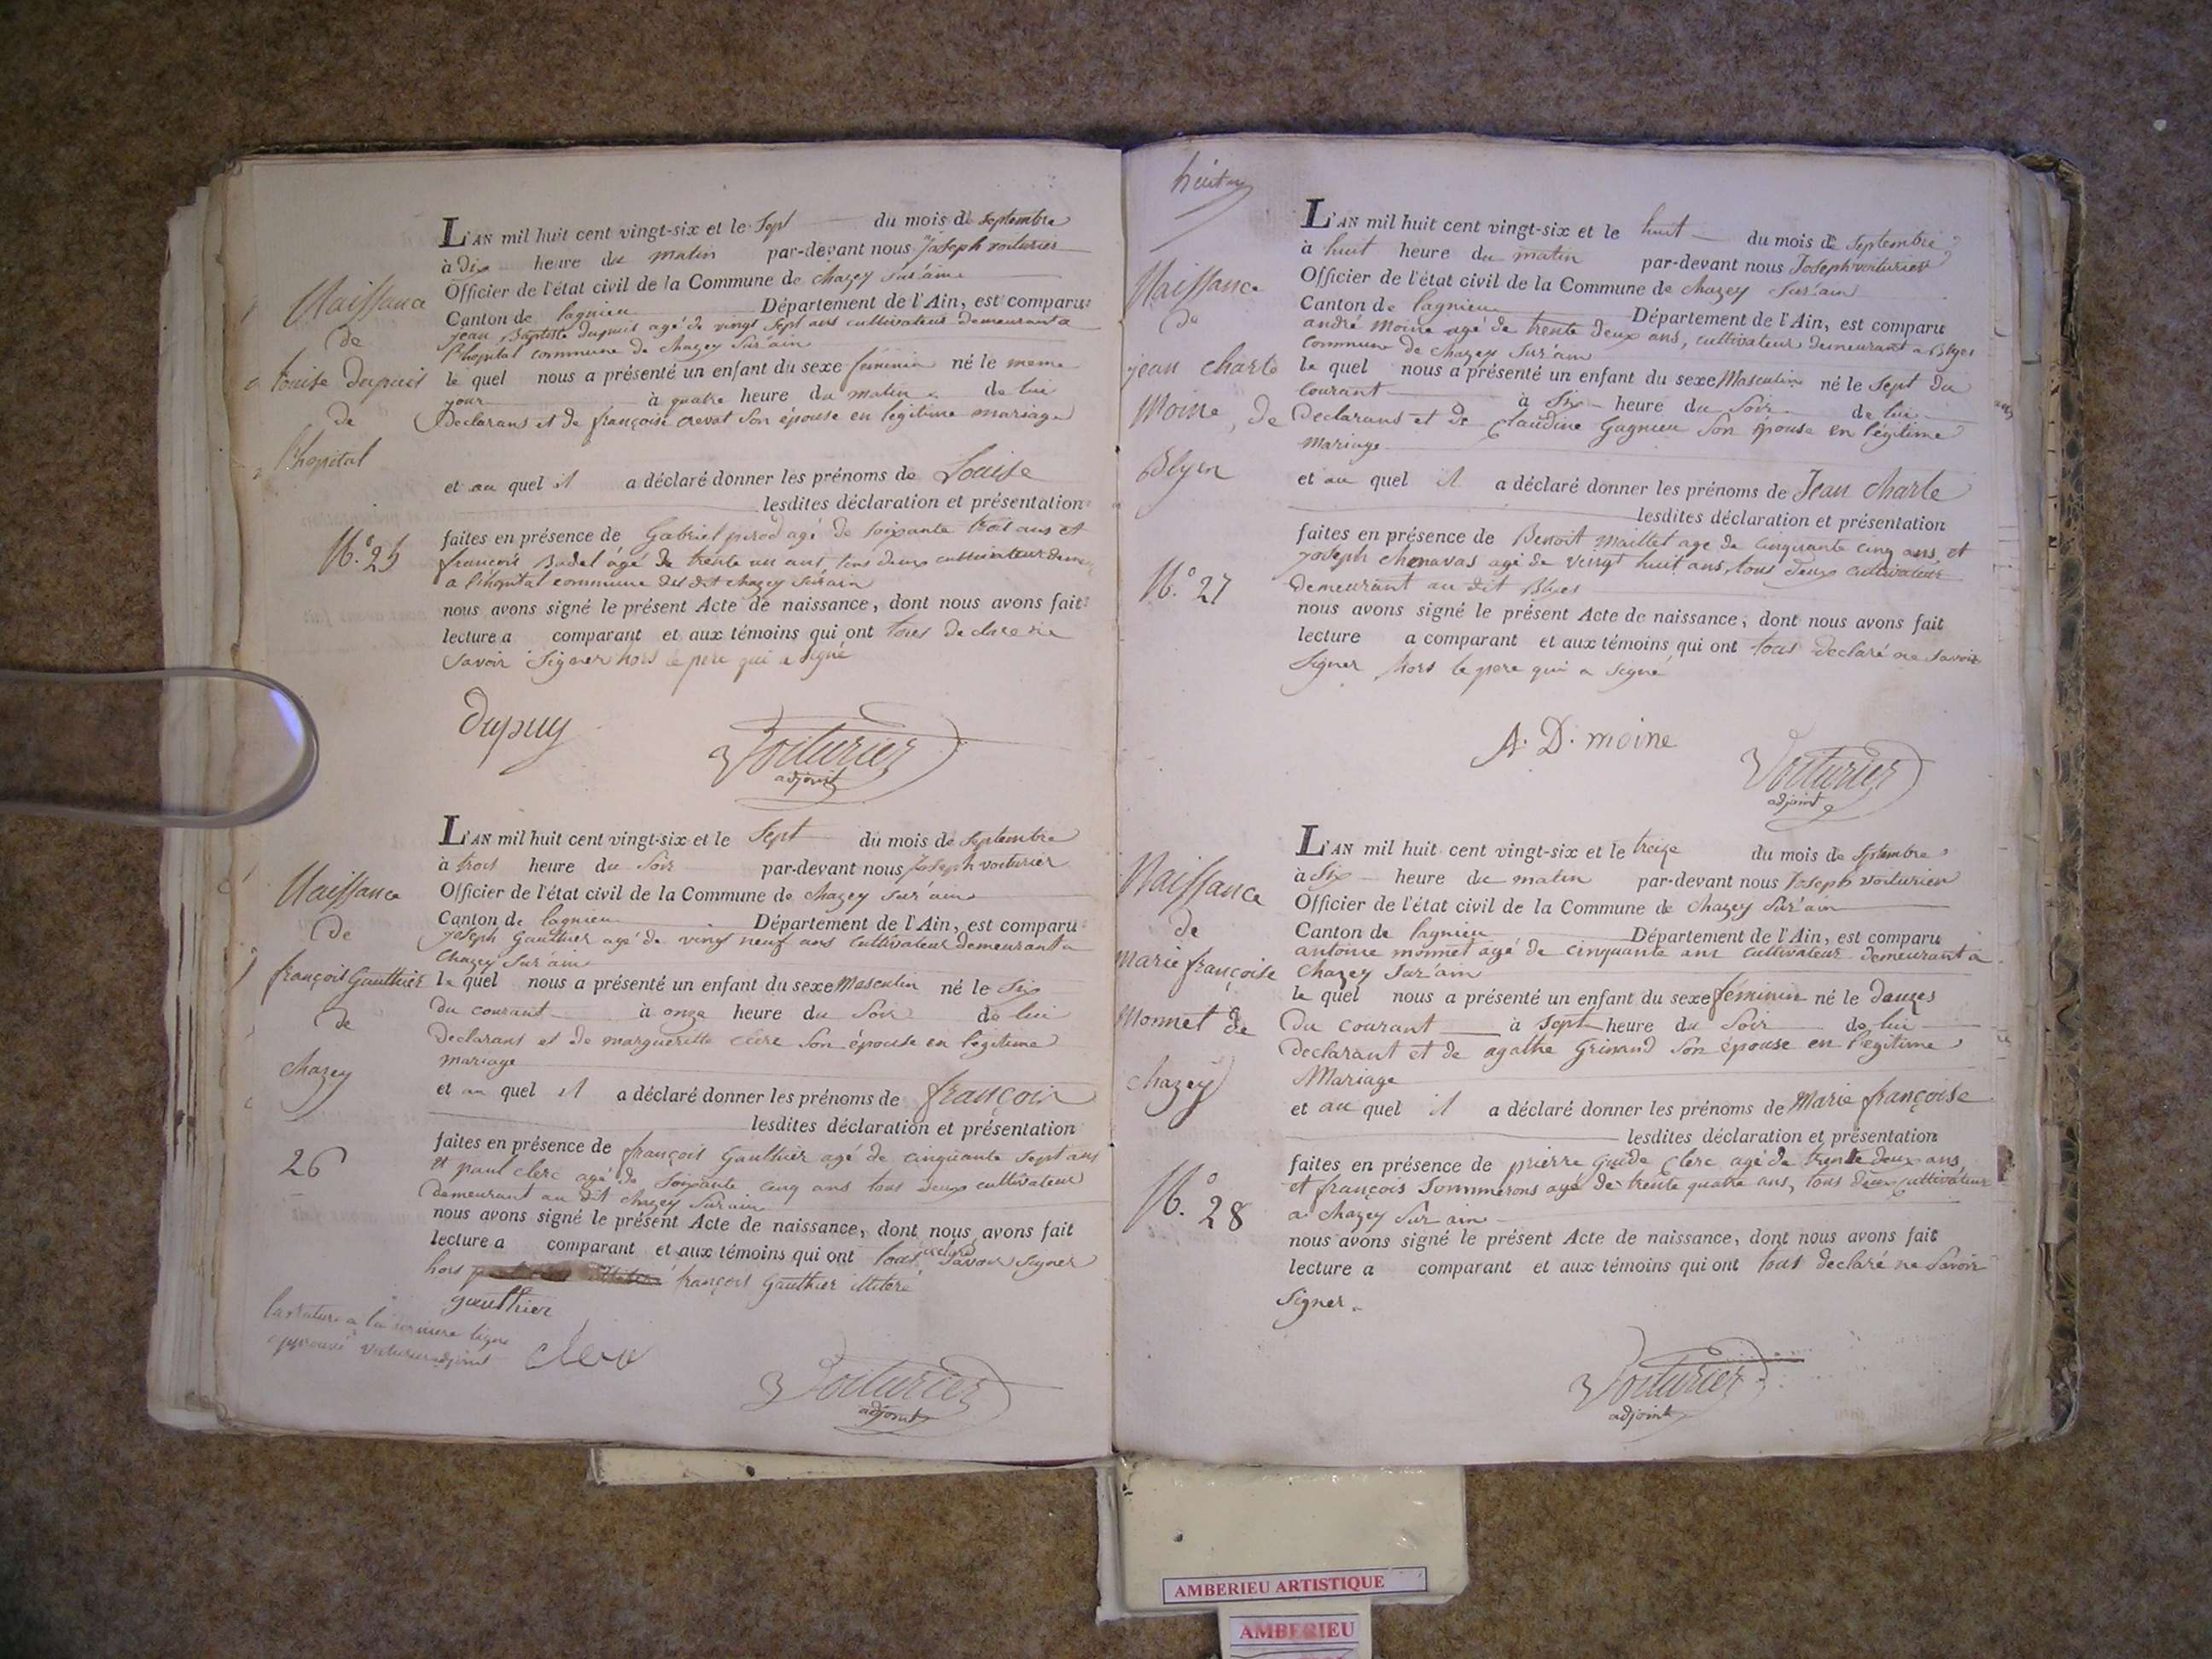 L'AN mil huit cent vingt-six et le Sept du mois de septembre
à Dix heure du matin par-devant nous Joseph voiturier
Officier de l'état civil de la Commune de chazey sur'ain
Canton de lagnieu Département de l'Ain, est comparu
jean Baptiste dupuis agé de vingt sept ans cultivateur demeurant a
l'hopital commune de chazey sur'ain
le quel nous a présenté un enfant du sexe feminin né le meme
jour à quatre heure du matin de lui
Declarans et de françoise crevat son épouse en legitime mariage
et au quel il a déclaré donner les prénoms de Louise
lesdites déclaration et présentation
faites en présence de Gabriel pirod agé de soixante trois ans et
françois Badel agé de trente un ans, tous deux cultivateur
a l'hopital commune du dit chazey sur'ain
nous avons signé le présent Acte de naissance, dont nous avons fait
lecture a comparant et aux témoins qui ont tous declare ne
savoir signer hors le pere qui a signé
dupuy
Voiturier
adjoint
Naissance
de
Louise dupuis
de
l'hopital
N.º 25
L'AN mil huit cent vingt-six et le Sept du mois de septembre
à trois heure du soir par-devant nous joseph voiturier
Officier de l'état civil de la Commune de chazey sur'ain
Canton de lagnieu Département de l'Ain, est comparu
joseph Gauthier agé de vingt neuf ans cultivateur demeurant a
chazey sur'ain
le quel nous a présenté un enfant du sexe Masculin né le six
du courant à onze heure du soir de lui
declarant et de margueritte clere son épouse en legitime
mariage
et au quel il a déclaré donner les prénoms de françois
lesdites déclaration et présentation
faites en présence de françois Gauthier agé de cinquante sept ans
et paul clerc agé de soixante cinq ans tous deux cultivateur
demeurant au dit chazey sur ain
nous avons signé le présent Acte de naissance, dont nous avons fait
lecture a comparant et aux témoins qui ont tous declaré savoir signer
hors françois Gauthier illiteré
gauthier
clerc
Voiturier
adjoint
Naissance
de
françois Gauthier
de
chazey
26
la rature a la derniere ligne
approuvé voiturier adjoint
huit
L'AN mil huit cent vingt-six et le huit du mois de septembre
à huit heure du matin par-devant nous Joseph voiturier
Officier de l'état civil de la Commune de chazey sur'ain
Canton de lagnieu Département de l'Ain, est comparu
andré Moine agé de trente deux ans, cultivateur demeurant a Blyes
commune de chazey sur'ain
le quel nous a présenté un enfant du sexe Masculin né le sept du
courant à six heure du soir de lui
Declarans et de Claudine Gagnieu son épouse en légitime
mariage
et au quel il a déclaré donner les prénoms de Jean charle
lesdites déclaration et présentation
faites en présence de Benoit maillet age de cinquante cinq ans et
joseph chenavas agé de vingt huit ans, tous deux cultivateur
demeurant au dit Blyes
nous avons signé le présent Acte de naissance, dont nous avons fait
lecture a comparant et aux témoins qui ont tous declaré ne savoir
signer hors le pere qui a signé
A. D. moine
Voiturier
adjoint
Naissance
de
jean charle
Moine, de
Blyes
N.º 27
L'AN mil huit cent vingt-six et le treize du mois de septembre
à six heure du matin par-devant nous Joseph voiturier
Officier de l'état civil de la Commune de chazey sur'ain
Canton de lagnieu Département de l'Ain, est comparu
antoine monnet agé de cinquante ans cultivateur demeurant a
chazey sur'ain
le quel nous a présenté un enfant du sexe féminin né le douzes
du courant à sept heure du soir de lui
declarant et de agathe Grinand son épouse en legitime
Mariage
et au quel il a déclaré donner les prénoms de Marie françoise
lesdites déclaration et présentation
faites en présence de prierre Guide clerc agé de trente deux ans
et françois Sommerons agé de trente quatre ans, tous deux cultivateur
a chazey sur ain
nous avons signé le présent Acte de naissance, dont nous avons fait
lecture a comparant et aux témoins qui ont tous declaré ne savoir
signer.
Voiturier
adjoint
Naissance
de
marie françoise
Monnet de
chazey
N.º 28
AMBERIEU ARTISTIQUE
AMBERIEU